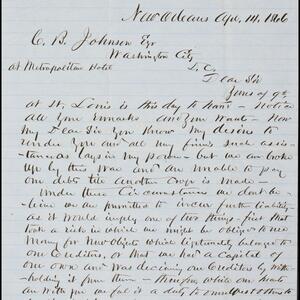 New Orleans Apr. 14, 1866
C. B. Johnson Esq
Washington City
at Metropolitan Hotel D. C.
Dear Sir
Yours of 9th
at St. Louis is this day to hand - Notice
all your remarks and your wants - Now
My Dear Sir You Know My desire to
render you and all my friends such assis-
tance as lays in My power - but we are broke
up by this War and are unable to pay
our debts till another Crop is made -
Under these Circumstances we dont be-
lieve we are permitted to incur further liability
as it would imply one of two things - first that
took a risk in which we might be obliged to use
Money for New Objects which legitimately belonged to
our Creditors, or that we had a Capital of
our own and was deceiving our Creditors by with-
holding it from them - therefore while our hearts
are with you we feel it a duty to